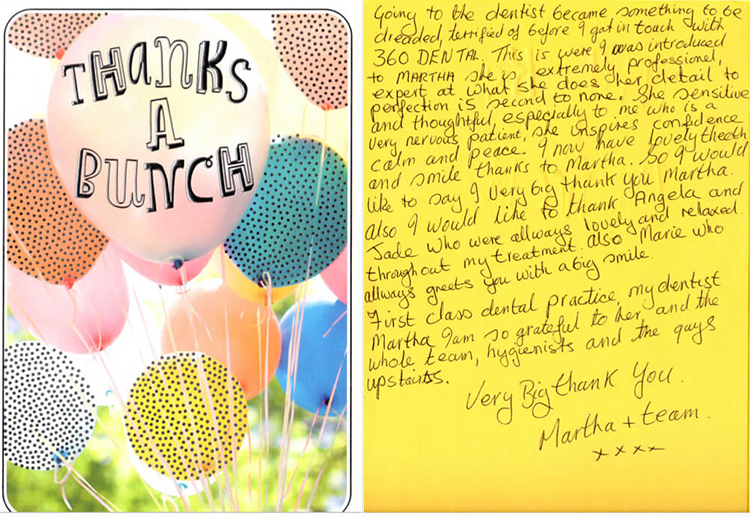 THANKS
A
BUNCH
Going to the dentist became something to be
dreaded, terrified of before I got in touch with
360 DENTAL. This is were I was introduced
to MARTHA she is extremely professional,
expert at what she does her detail to
perfection is second to none. She sensitive
and thoughtful, especially to me who is a
very nervous patient, she inspires confidence
calm and peace. I now have lovely theeth
and smile thanks to Martha. So I would
like to say I very big thank you Martha.
Also I would like to thank Angela and
Jade who were allways lovely and relaxed
throughout my treatment. also Marie who
allways greets you with a big smile.
First class dental practice, my dentist
Martha I am so grateful to her, and the
whole team, hygienists and the guys
upstairs.
Very Big thank You.
Martha + team.
x x x x